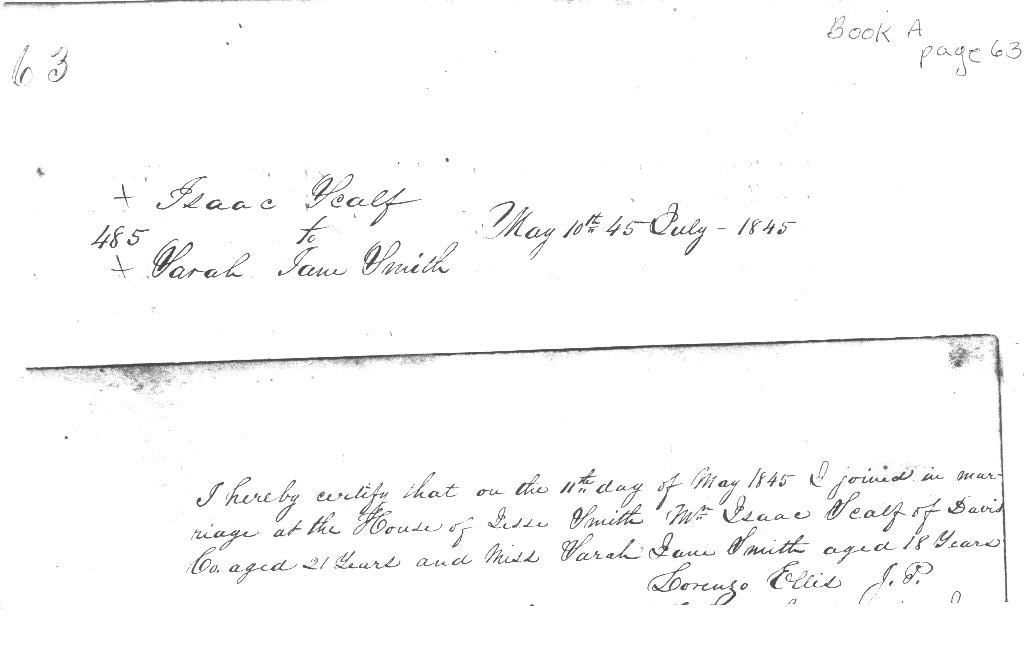 Book A
page 63
63
+ Isaac Scalf
to
485
May 10th 45 July - 1845
+ Sarah Jane Smith
I hereby certify that on the 11th day of May 1845 I joined in mar-
riage at the House of Jesse Smith Mr Isaac Scalf of Davis
Co. aged 21 Years and Miss Sarah Jane Smith aged 18 Years
Lorenzo Ellis J. P.